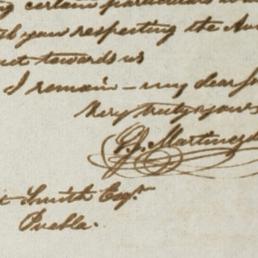 certain particulars
you respecting the
towards us
I remain - my dear
Very truly yours
Martinez
Smith Esqr
Puebla.